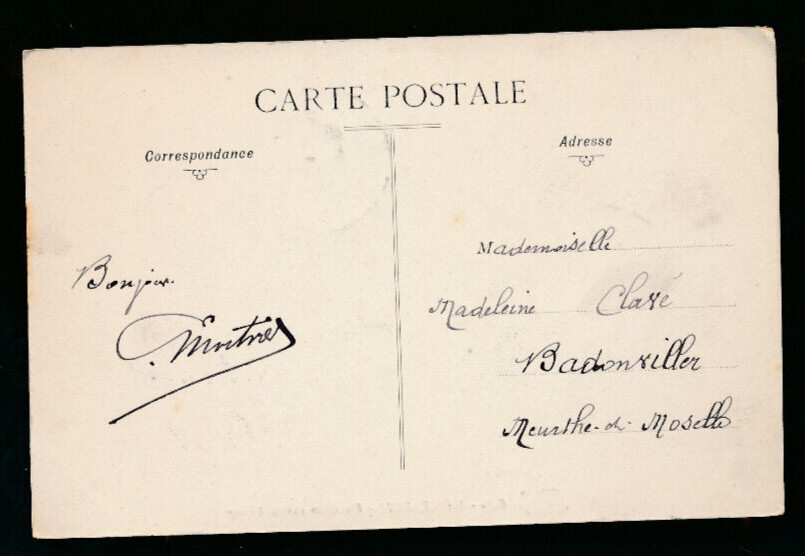 CARTE POSTALE
Correspondance
Adresse
Bonjour.
Mademoiselle
Madeleine Claré
Badonviller
Meurthe-et-Moselle